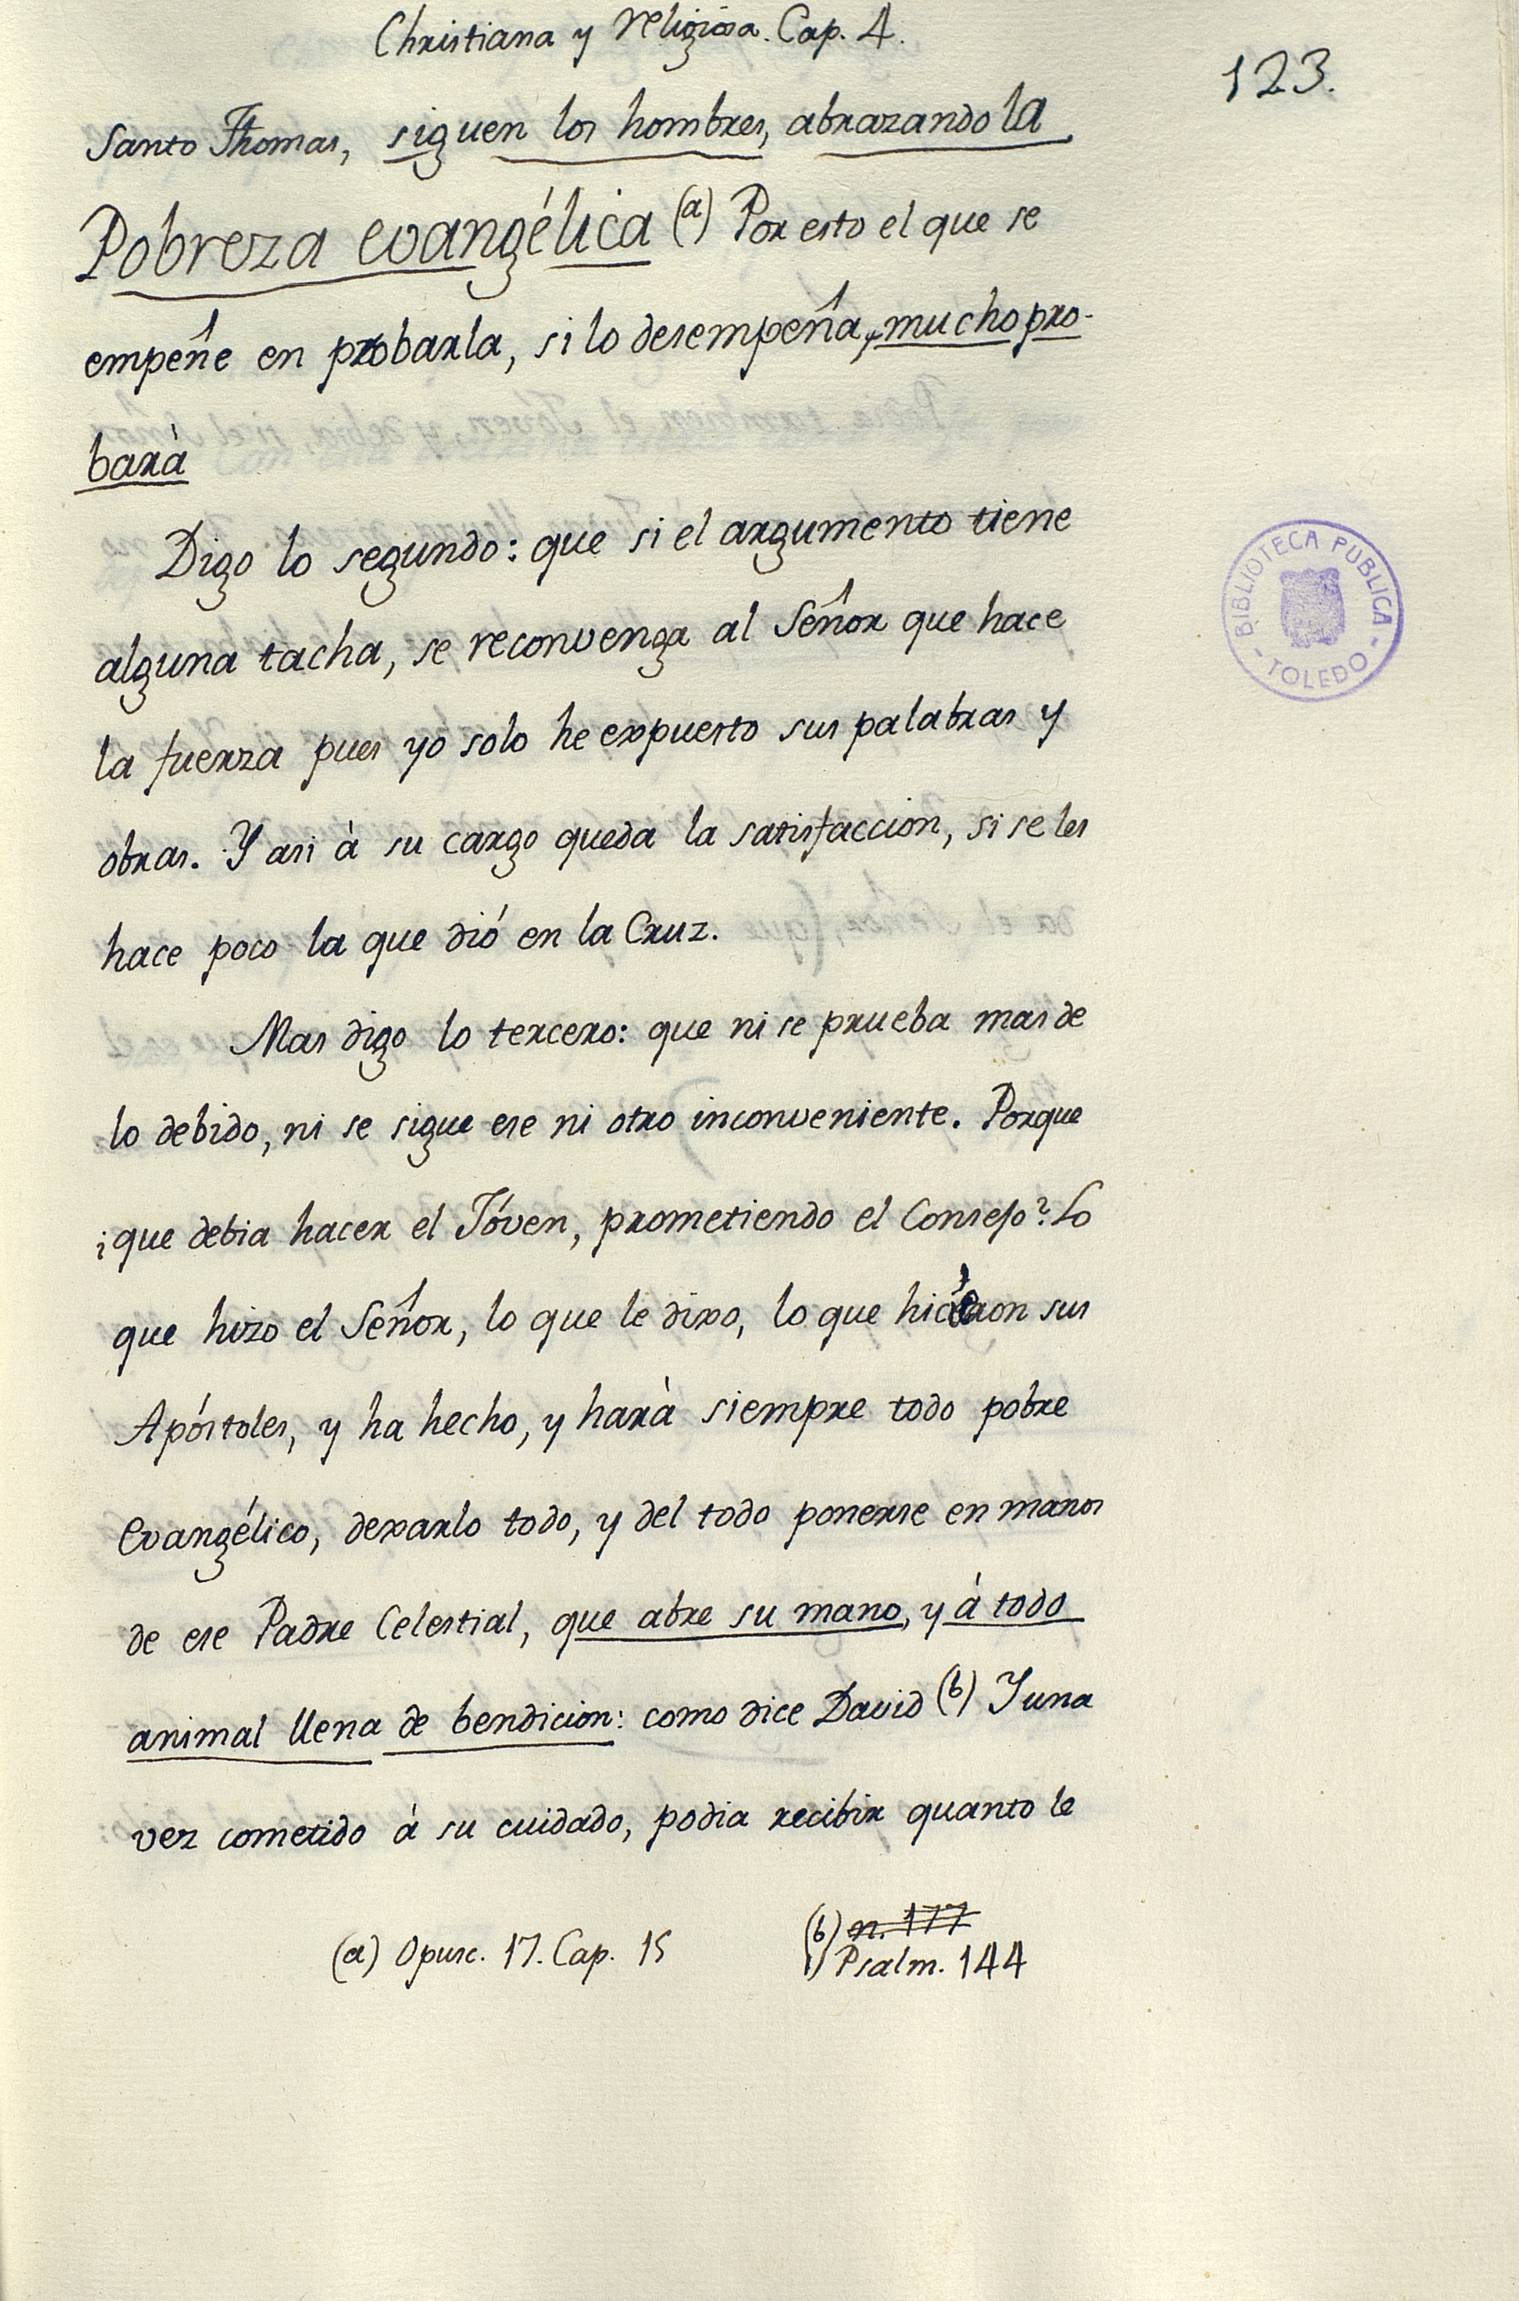 Christiana y religiosa. Cap. 4.
123.
Santo Thomas, siguen los hombres, abrazando la
Pobreza evangélica (a) Por esto el que se
empeñe en probarla, si lo desempeña, mucho pro-
barà
Digo lo segundo: que si el argumento tiene
alguna tacha, se reconvenga al Señor que hace
la fuerza pues yo solo he expuesto sus palabras y
obras. Y asi à su cargo queda la satisfaccion, si se les
hace poco la que dió en la Cruz.
Mas digo lo tercero: que ni se prueba mas de
lo debido, ni se sigue ese ni otro inconveniente. Porque
¿que debia hacer el Jóven, prometiendo el Consejo? Lo
que hizo el Señor, lo que le dixo, lo que hiciéron sus
Apóstoles, y ha hecho, y harà siempre todo pobre
Evangélico, dexarlo todo, y del todo ponerse en manos
de ese Padre Celestial, que abre su mano, y à todo
animal llena de bendicion: como dice David (b) Y una
vez cometido à su cuidado, podia recibir quanto le
(a) Opusc. 17. Cap. 15
(b) n. 177
Psalm. 144
BIBLIOTECA PUBLICA
- TOLEDO -